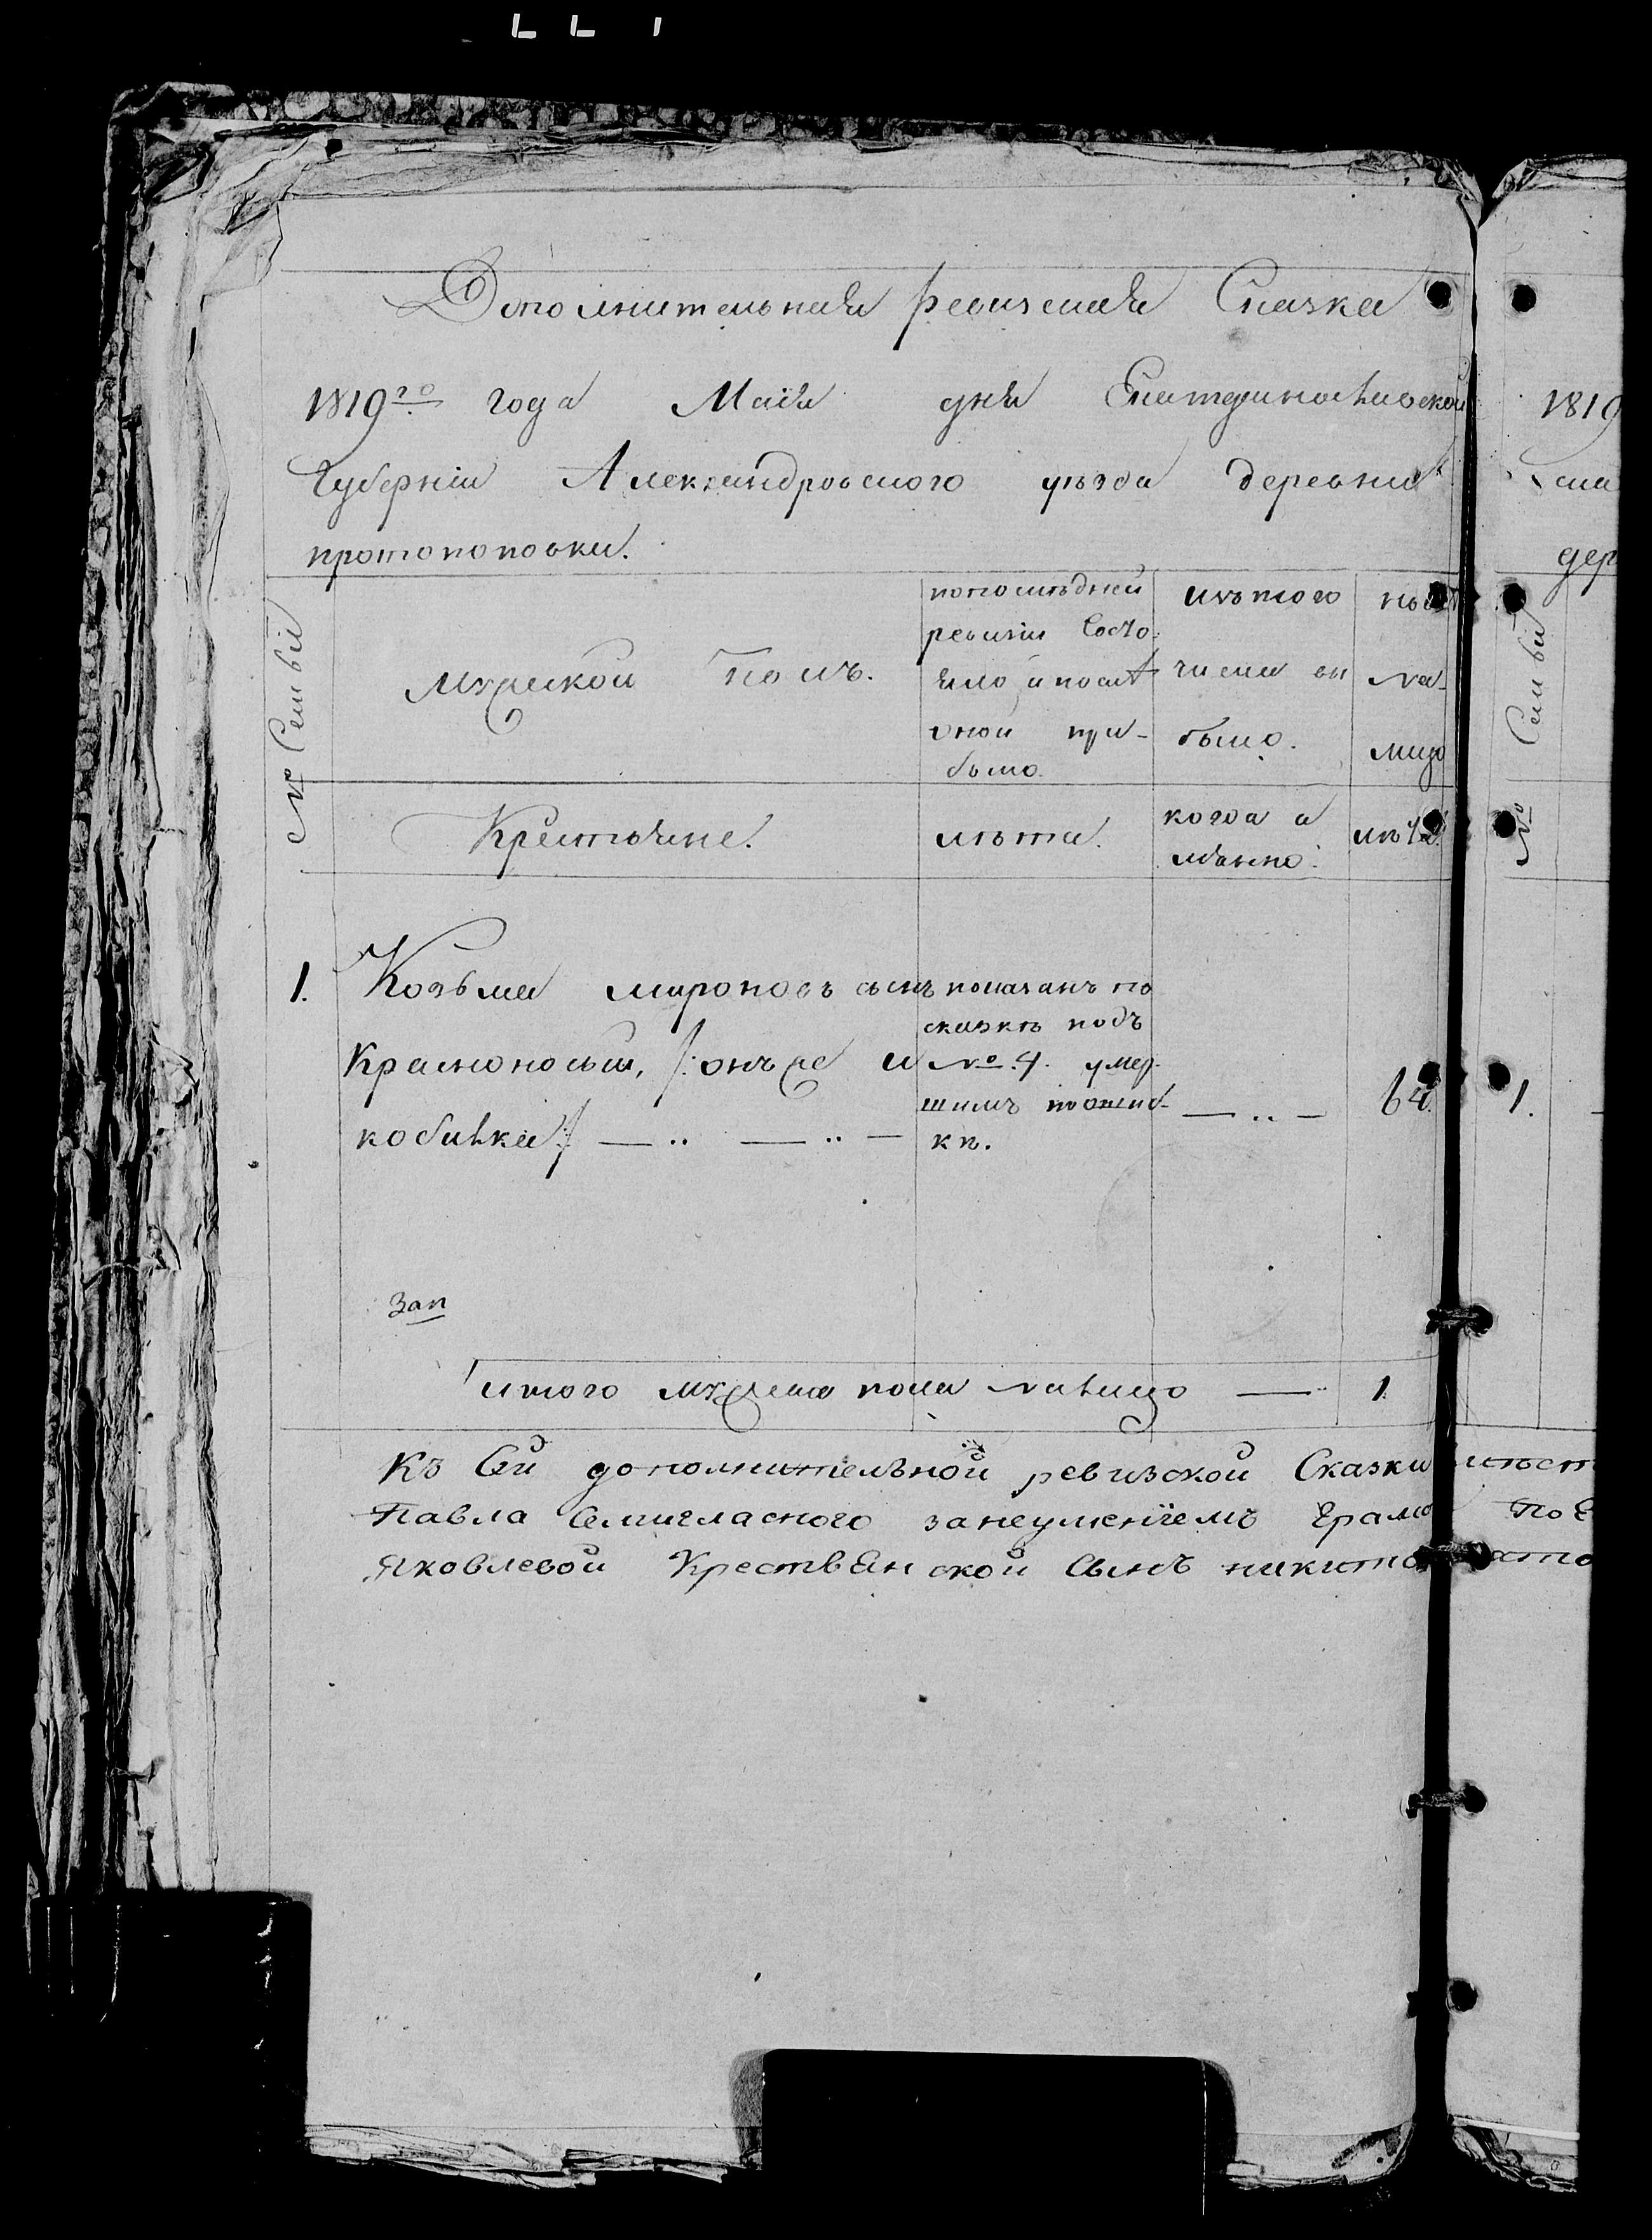 Дополнительная ревизская Сказка
1819го года Маія дня Екатеринославской
Губерніи Александровского уезда деревни
протопоповки.
№ Семьи
мужской полъ.
попоследней
ревизіи Состо-
яло и после
оной при-
было.
изъ того
числа вы
было.
ныне
на
лицо
Крестьяне.
лета.
когда а
имянно.
лета.
1. Козьма мироновъ сынъ
Красноносый, /: онъже и
кобилка :/ — .. — .. —
показанъ по
сказке подъ
№ 4. умер-
шимъ поошиб-
ке.
— .. —
64.
Зап
итого мужеска пола налицо — 1.
Къ Сей дополнительной ревизской Сказки
Павла Семигласного занеуменіемъ Грамо
Яковлевой Крествянской Сынъ никито
1819
ска
дер
№ Семьи
1.
по